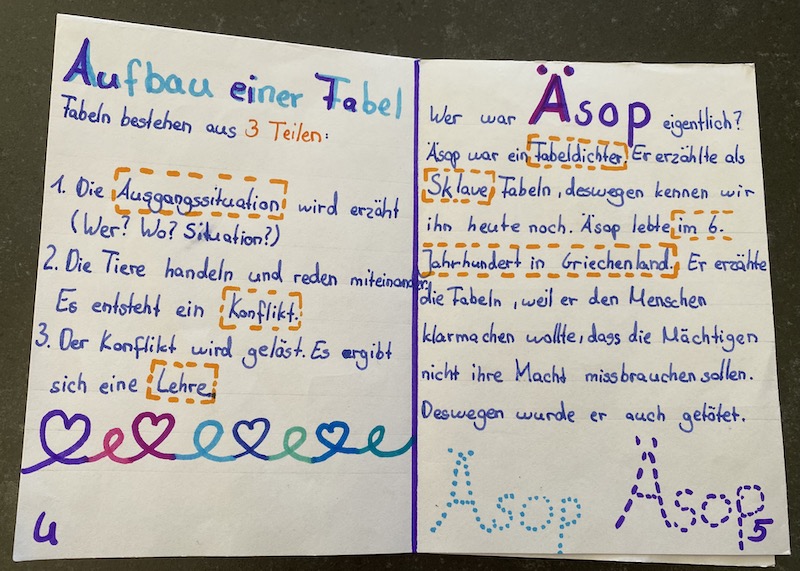 Aufbau einer Fabel
Fabeln bestehen aus 3 Teilen:
1. Die Ausgangssituation wird erzäht
(Wer? Wo? Situation?)
2. Die Tiere handeln und reden miteinander.
Es entsteht ein Konflikt.
3. Der Konflikt wird geläst. Es ergibt
sich eine Lehre.
4
Wer war Äsop eigentlich?
Äsop war ein Fabeldichter. Er erzählte als
Sklave Fabeln, deswegen kennen wir
ihn heute noch. Äsop lebte im 6.
Jahrhundert in Griechenland. Er erzähte
die Fabeln, weil er den Menschen
klarmachen wollte, dass die Mächtigen
nicht ihre Macht missbrauchen sollen.
Deswegen wurde er auch getötet.
Äsop Äsop
5